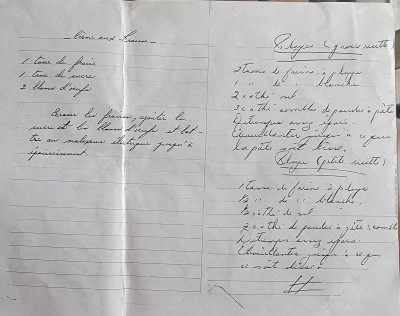 Crème aux fraises
1 tasse de fraise
1 tasse de sucre
2 blancs d'oeufs
Écraser les fraises, ajouter le
sucre et les blancs d'oeufs et bat-
tre au malaxeur électrique jusqu'à
épaississement.
Ployes (grosse recette)
2 tasses de farine à ployes
1 " de " blanche
2 c. à thé sel
3 c. à thé comble de poudre à pâte
Détremper assez épais.
Ébouillanter jusqu'à ce que
la pâte soit lisse.
Ployes (petite recette)
1 tasse de farine à ployes
1/2 " de " blanche.
c. à thé de sel
2 c. à thé de poudre à pâte comble
Détremper assez épais.
Ébouillanter jusqu'à ce que
ce soit lisse